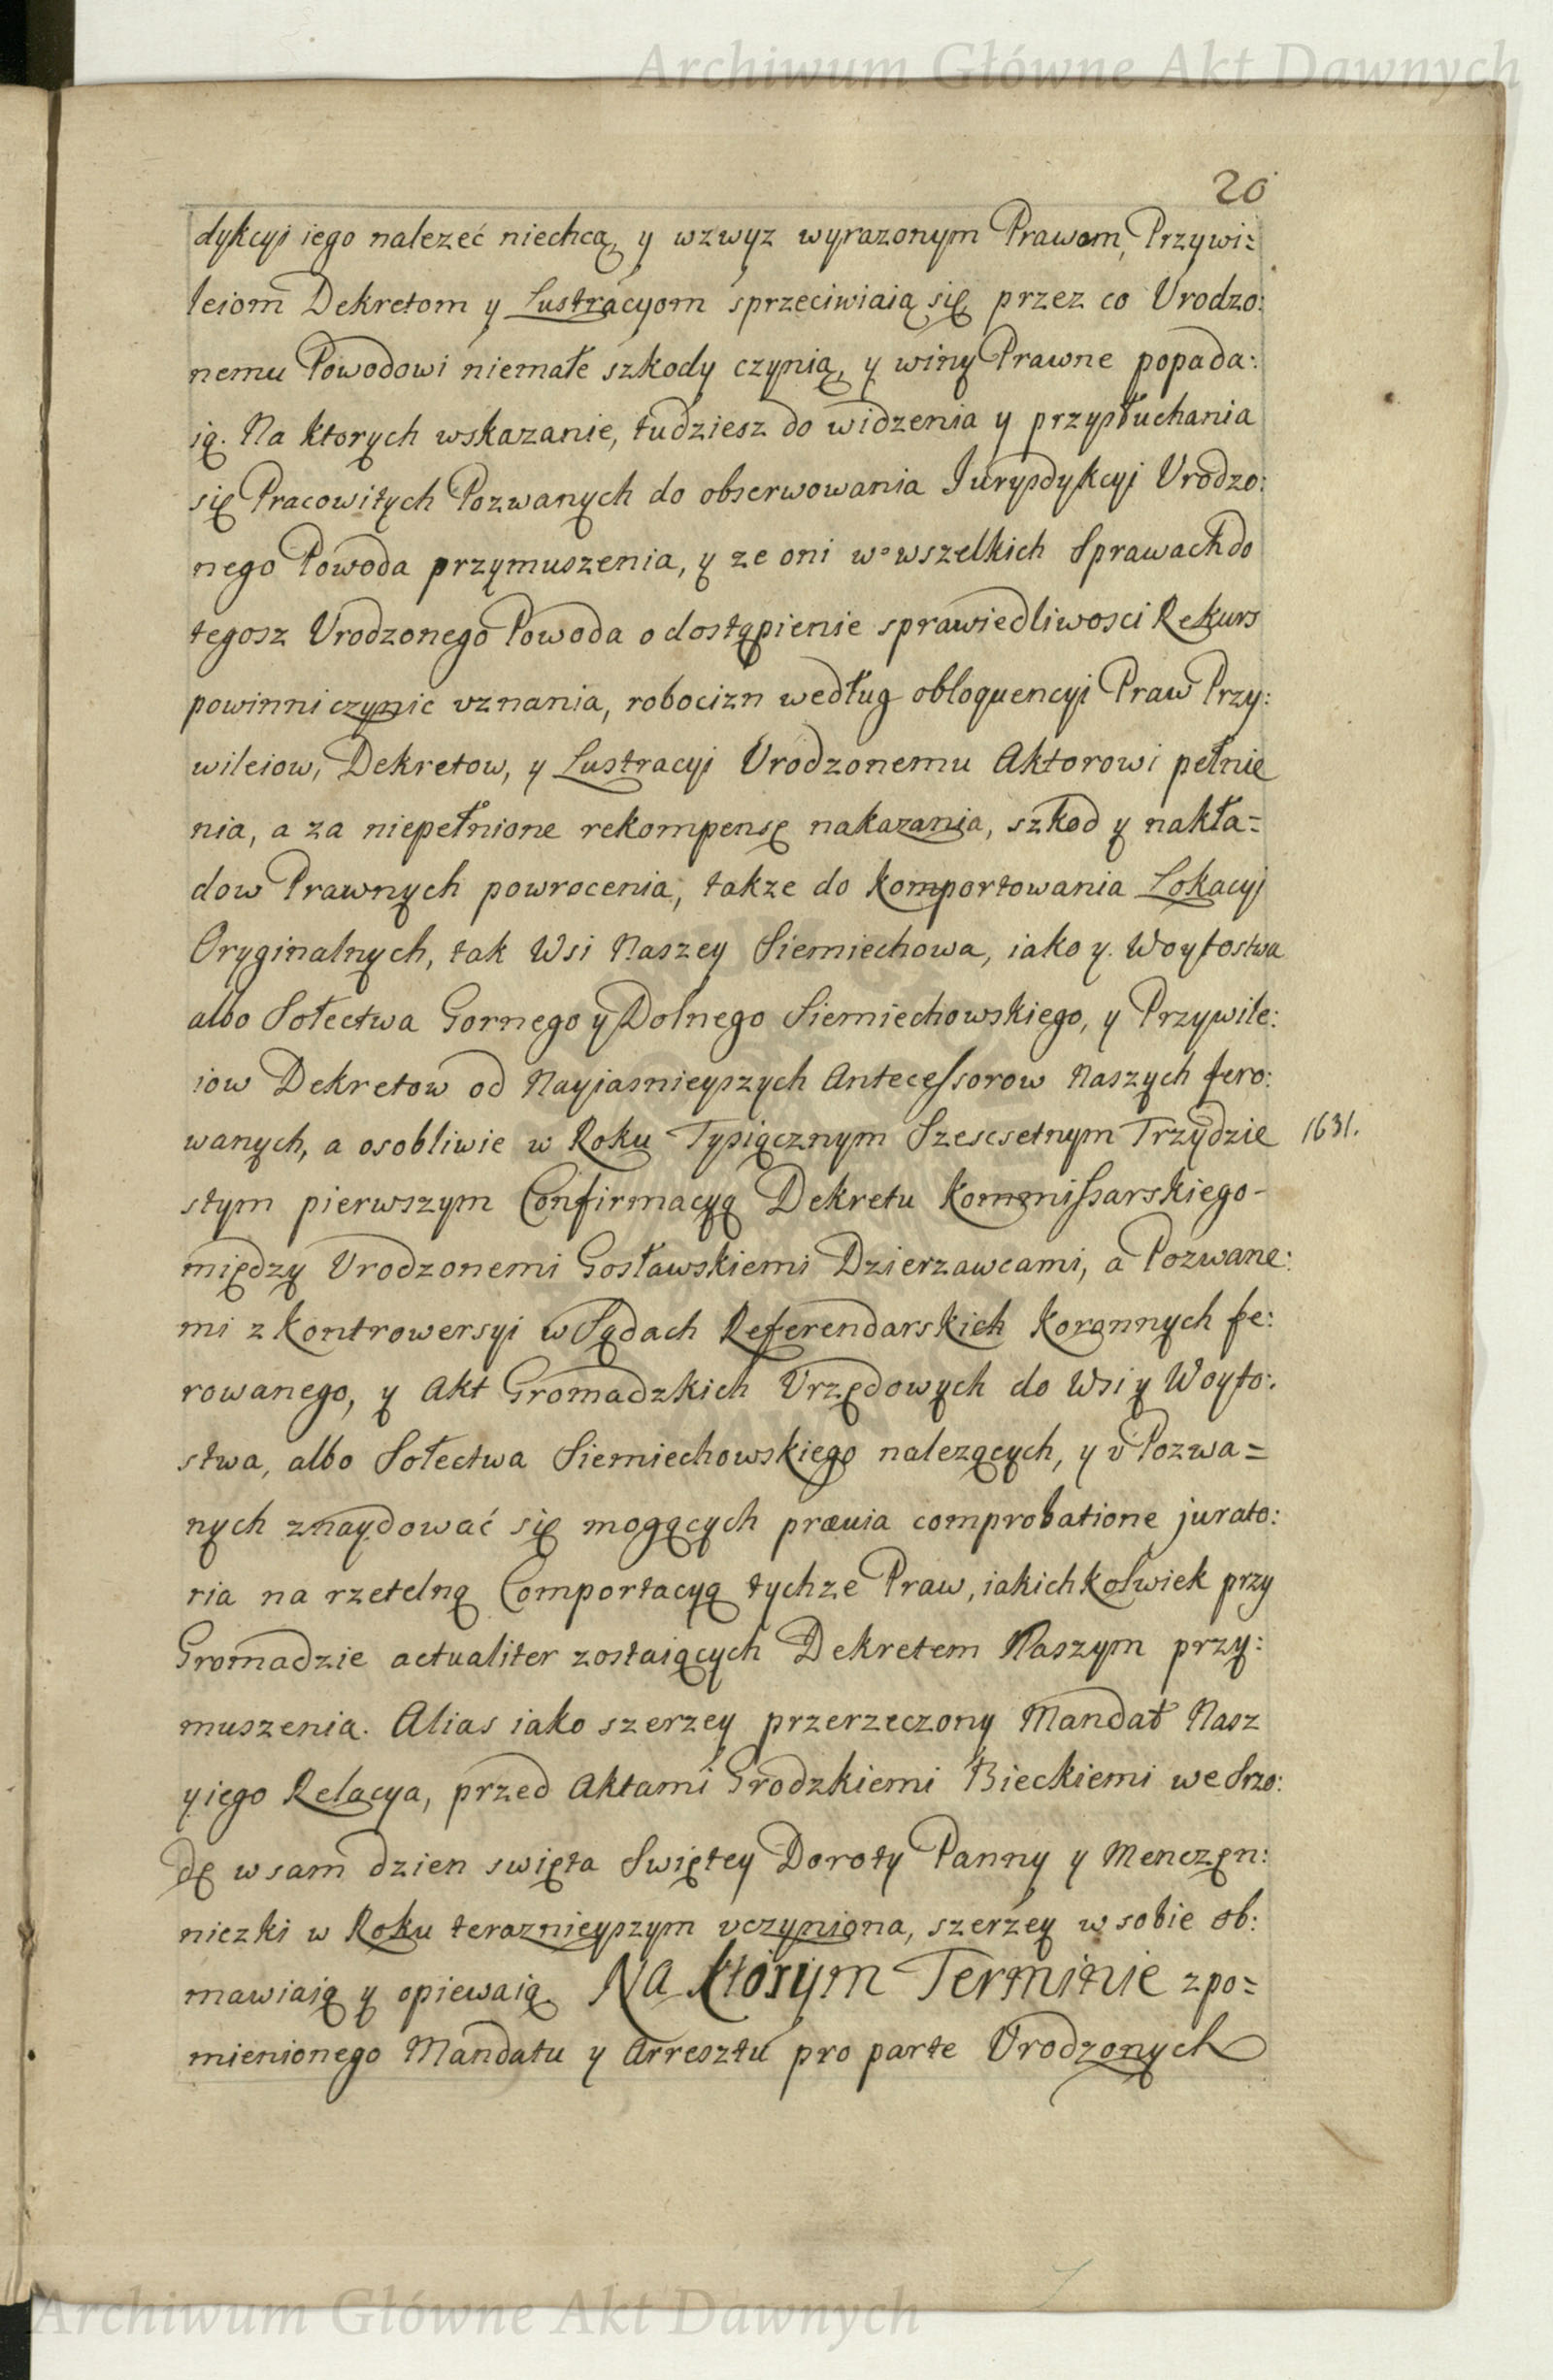 Archiwum Główne Akt Dawnych
20
dykcyi iego nalezeć niechcą, y wzwyz wyrazonym Prawom, Przywi=
leiom Dekretom y Lustracyom sprzeciwiaią się, przez co Vrodzo:
nemu Powodowi niemałe szkody czynią, y winy Prawne popada:
ią. Na ktorych wskazanie, tudziesz do widzenia y przysłuchania
się Pracowitych Pozwanych do obserwowania Jurysdykcyi Vrodzo:
nego Powoda przymuszenia, y ze oni w wszelkich Sprawach do
tegosz Vrodzonego Powoda o dostąpienie sprawiedliwosci Rekurs
powinni czynic vznania, robocizn według obloquencyi Praw Przy:
wileiow, Dekretow, y Lustracyi Vrodzonemu Aktorowi pełnie
nia, a za niepełnione rekompensę nakazania, szkod y nakła=
dow Prawnych powrocenia, takze do komportowania Lokacyi
Oryginalnych, tak Wsi Naszey Siemiechowa, iako y Woytostwa
albo Sołectwa Gornego y Dolnego Siemiechowskiego, y Przywile:
iow Dekretow od Nayiasnieyszych Antecessorow Naszych fero:
wanych, a osobliwie w Roku Tysiącznym Szescsetnym Trzydzie 1631.
stym pierwszym Confirmacyą Dekretu Kommissarskiego-
między Vrodzonemi Gosławskiemi Dzierzawcami, a Pozwane:
mi z kontrowersyi w Sądach Referendarskich Koronnych fe:
rowanego, y Akt Gromadzkich Vrzędowych do Wsi y Woyto:
stwa, albo Sołectwa Siemiechowskiego nalezących, y v Pozwa=
nych znaydować się mogących prævia comprobatione jurato:
ria na rzetelną Comportacyą tychze Praw, iakichkolwiek przy
Gromadzie actualiter zostaiących Dekretem Naszym przy:
muszenia. Alias iako szerzey przerzeczony Mandat Nasz
y iego Relacya, przed Aktami Grodzkiemi Bieckiemi we Srzo:
dę w sam dzien swięta Swiętey Doroty Panny y Menczęn:
niczki w Roku teraznieyszym vczyniona, szerzey w sobie ob:
mawiaią y opiewaią. Na ktorym Terminie zpo=
mienionego Mandatu y Arresztu pro parte Vrodzonych
Archiwum Główne Akt Dawnych